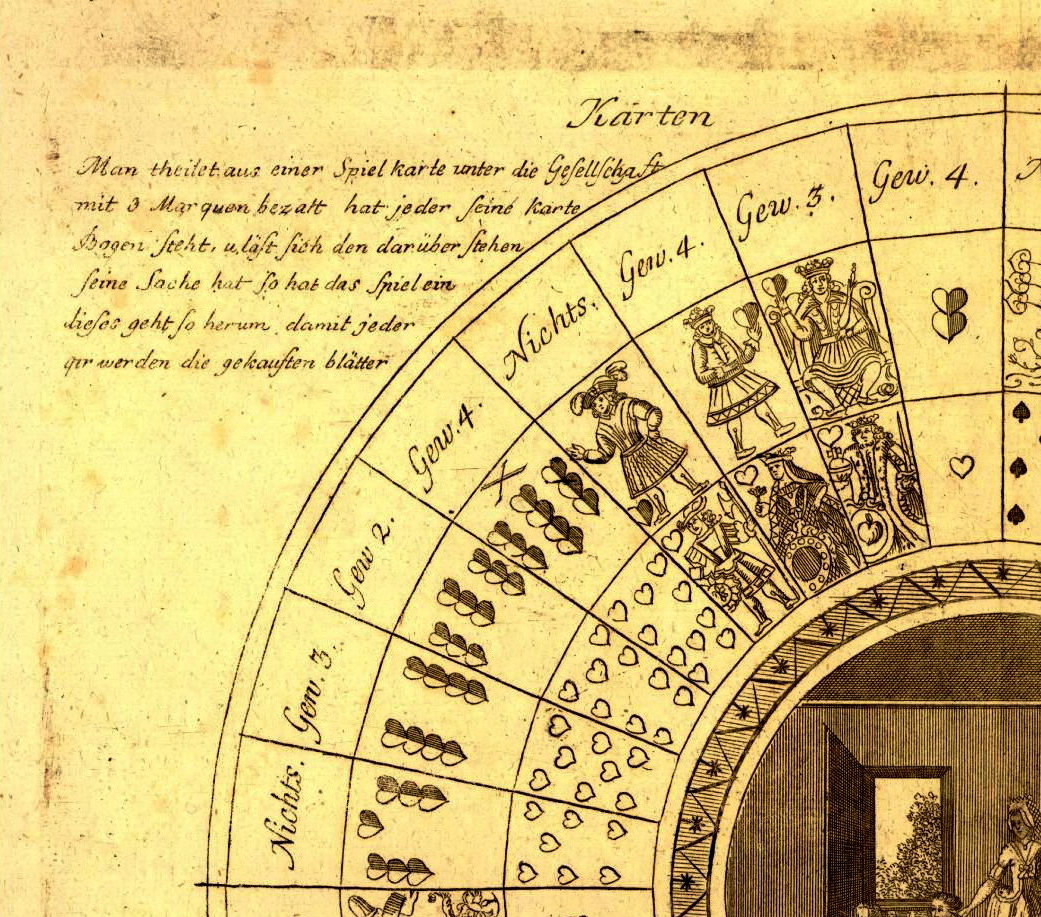 Karten
Man theilet aus einer Spielkarte unter die Gesellschaft
mit 3 Marquen bezalt hat jeder seine karte
Bogen steht, u, läst sich den darüber stehen
seine Sache hat so hat das Spiel ein
dieses geht so herum damit jeder
werden die gekauften blätter
Nichts.
Gew. 3.
Gew 2.
Gew. 4.
Nichts.
Gew. 4.
Gew. 3.
Gew. 4.
X